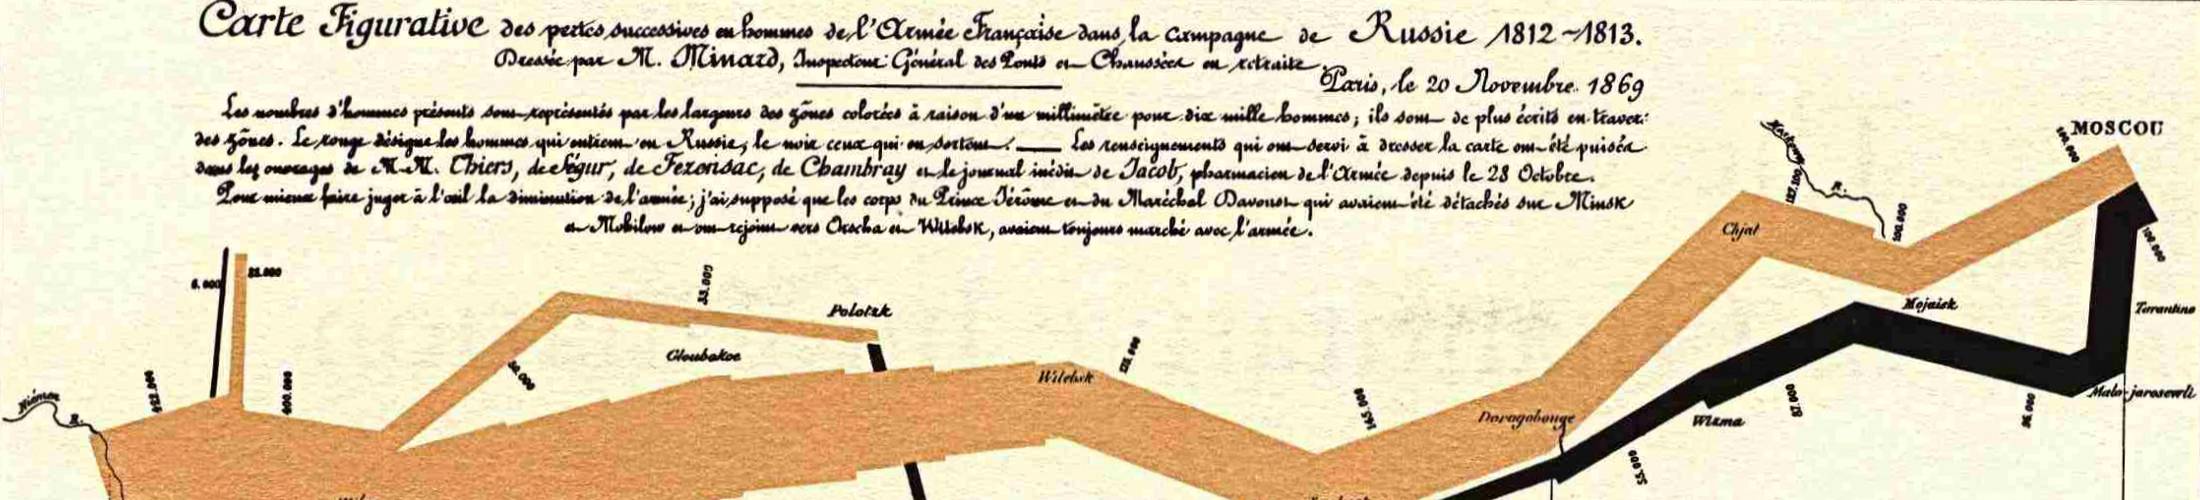 Carte Figurative des pertes successives en hommes de l'Armée Française dans la campagne de Russie 1812~1813.
Dressée par M. Minard, Inspecteur Général des Ponts et Chaussées en retraite.
Paris, le 20 Novembre 1869
Les nombres d'hommes présents sont représentés par les largeurs des zônes colorées à raison d'un millimètre pour dix mille hommes; ils sont de plus écrits en travers
des zônes. Le rouge désigne les hommes qui entrent en Russie, le noir ceux qui en sortent. — Les renseignements qui ont servi à dresser la carte ont été puisés
dans les ouvrages de M.M. Chiers, de Ségur, de Fezensac, de Chambray et le journal inédit de Jacob, pharmacien de l'Armée depuis le 28 Octobre.
Pour mieux faire juger à l'œil la diminution de l'armée; j'ai supposé que les corps du Prince Jérôme et du Maréchal Davoust qui avaient été détachés sur Minsk
et Mohilow et ont rejoint vers Orscha et Witebsk, avaient toujours marché avec l'armée.
MOSCOU
100.000
Moskowa R.
127.100
100.000
Chjat
100.000
6.000
22.000
33.000
Polotzk
Mojaisk
Tarantino
Gloubokoe
60.000
Witebsk
175.000
422.000
400.000
Niémen R.
145.000
Dorogobouge
Wizma
87.000
96.000
Malo-jarosewli
55.000